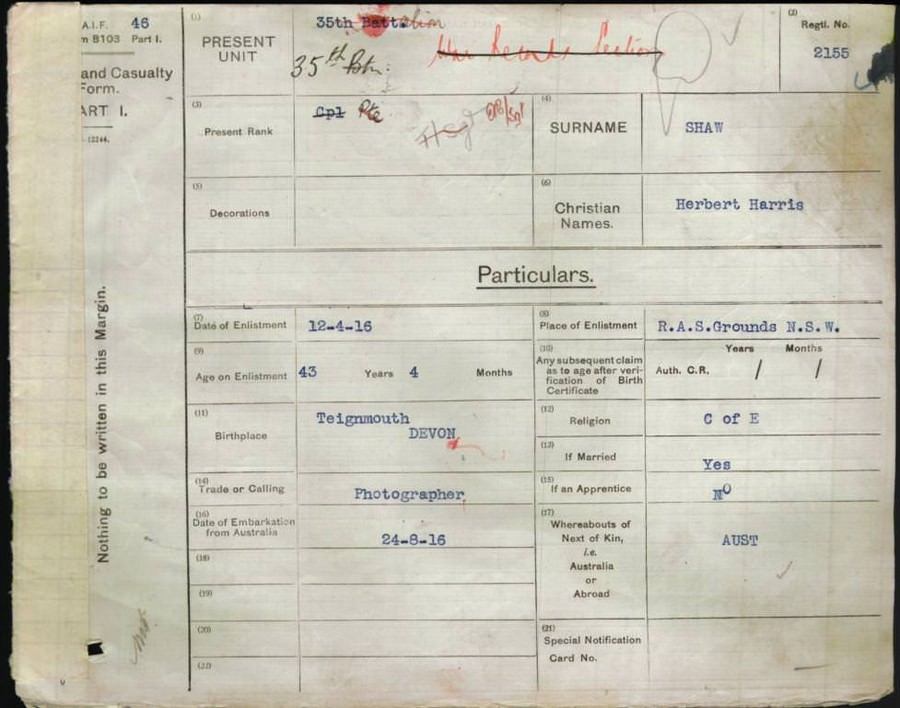 A.I.F. 46
m B103 Part I.
and Casualty
Form.
ART I.
12244.
Nothing to be written in this Margin.
(1)
PRESENT
UNIT
35th Battalion
35th Btn.
War Records Section
(2)
Regtl. No.
2155
(3)
Present Rank
Cpl Pte
(4)
SURNAME
SHAW
(5)
Decorations
(6)
Christian
Names.
Herbert Harris
Particulars.
(7)
Date of Enlistment
12-4-16
(8)
Place of Enlistment
R.A.S.Grounds N.S.W.
(9)
Age on Enlistment
43 Years 4 Months
(10)
Any subsequent claim
as to age after veri-
fication of Birth
Certificate
Years Months
Auth. C.R. / /
(11)
Birthplace
Teignmouth
DEVON
(12)
Religion
C of E
(13)
If Married
Yes
(14)
Trade or Calling
Photographer
(15)
If an Apprentice
NO
(16)
Date of Embarkation
from Australia
24-8-16
(17)
Whereabouts of
Next of Kin,
i.e.
Australia
or
Abroad
AUST
(18)
(19)
(20)
(21)
Special Notification
Card No.